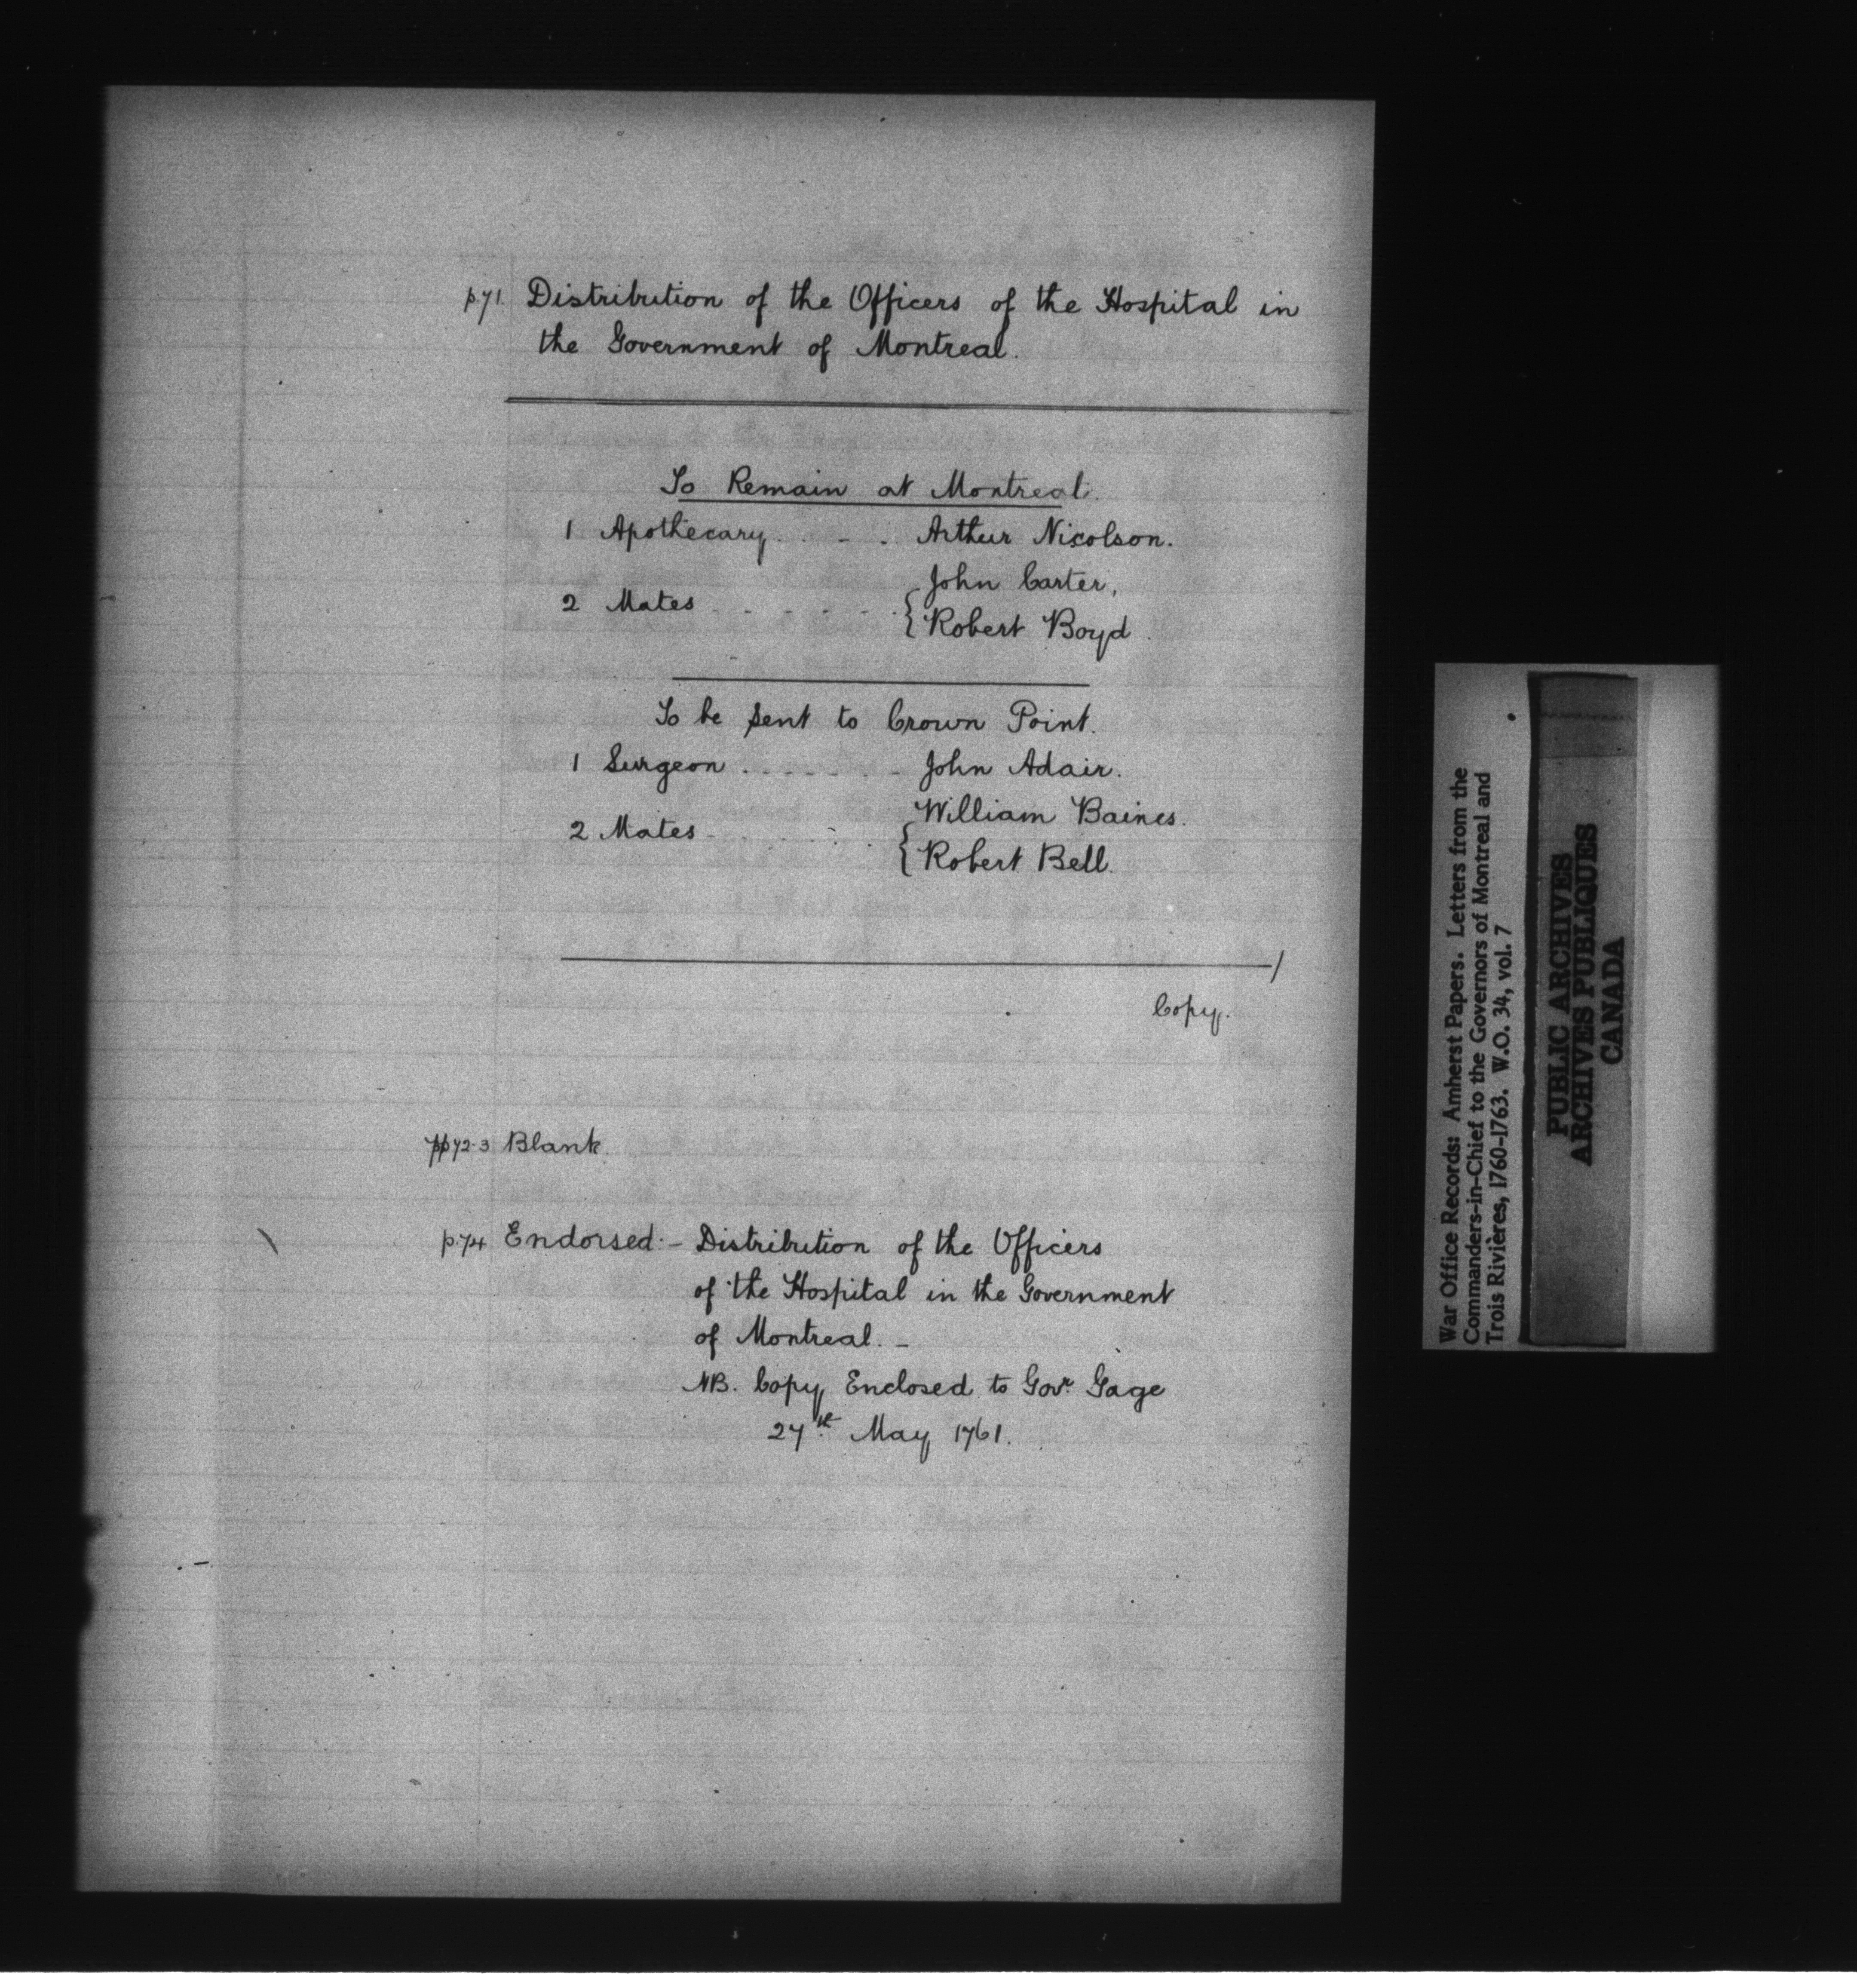 p.71. Distribution of the Officers of the Hospital in
the Government of Montreal.
To Remain at Montreal.
1 Apothecary . . - . Arthur Nicolson.
John Carter,
2 Mates . - - - - - . { Robert Boyd .
To be sent to Crown Point.
1 Surgeon . . - . - . - John Adair.
William Baines.
2 Mates - . . : . { Robert Bell.
Copy.
pp72-3 Blank.
p.74 Endorsed:- Distribution of the Officers
of the Hospital in the Government
of Montreal. -
NB. Copy Enclosed to Govr. Gage
27th. May 1761.
War Office Records: Amherst Papers. Letters from the
Commanders-in-Chief to the Governors of Montreal and
Trois Rivières, 1760-1763. W.O. 34, vol. 7
PUBLIC ARCHIVES
ARCHIVES PUBLIQUES
CANADA